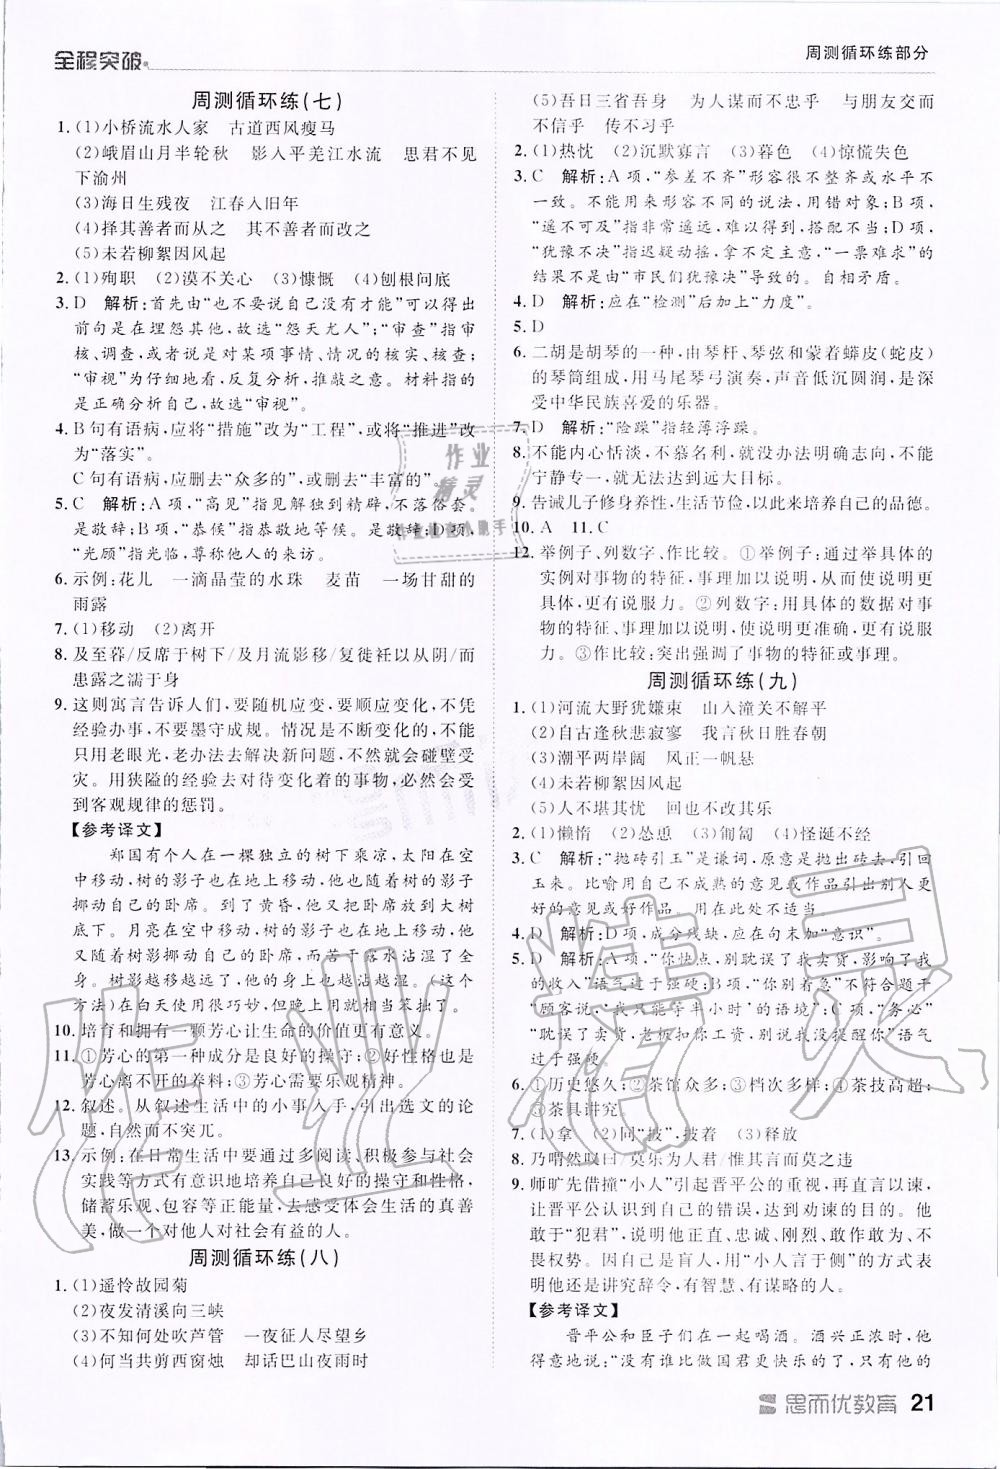 全程突破
周测循环练部分
周测循环练(七)
1. (1)小桥流水人家 古道西风瘦马
(2)峨眉山月半轮秋 影入平羌江水流 思君不见
下渝州
(3)海日生残夜 江春入旧年
(4)择其善者而从之 其不善者而改之
(5)未若柳絮因风起
2. (1)殉职 (2)漠不关心 (3)慷慨 (4)刨根问底
3. D 解析:首先由“也不要说自己没有才能”可以得出
前句是在埋怨其他,故选“怨天尤人”;“审查”指审
核、调查,或者说是对某项事情、情况的核实、核查;
“审视”为仔细地看,反复分析,推敲之意。材料指的
是正确分析自己,故选“审视”。
4. B句有语病,应将“措施”改为“工程”,或将“推进”改
为“落实”。
C句有语病,应删去“众多的”,或删去“丰富的”。
5. C 解析:A项,“高见”指见解独到精辟,不落俗套。
是敬辞;B项,“恭候”指恭敬地等候。是敬辞;D项,
“光顾”指光临,尊称他人来访。
6. 示例:花儿 一滴晶莹的水珠 麦苗 一场甘甜的
雨露
7. (1)移动 (2)离开
8. 及至暮/反席于树下/及月流影移/复徙衽以从阴/而
患露之濡于身
9. 这则寓言告诉人们,要随机应变,要顺应变化,依据
经验办事,不要墨守成规。情况是不断变化的,不能
只用老眼光,老办法去解决新问题,不然就会碰壁受
灾。用狭隘的经验去对待变化着的事物,必然会受
到客观规律的惩罚。
【参考译文】
郑国有个人在一棵独立的树下乘凉,太阳在空
中移动,树的影子也在地上移动,他也随着树的影子
挪动自己的卧席。到了黄昏,他又把卧席放到大树
底下。月亮在空中移动,树的影子也在地上移动,他
又随着树的影子挪动自己的卧席,而苦于露水沾湿了全
身。树影越移越远了,他的身上也越沾越湿。(这个
方法)在白天使用很巧妙,但晚上用就相当笨拙了。
10. 培育和拥有一颗芳心让生命的价值更有意义。
11. ①芳心的第一种成分是良好的操守;②好性格也是
芳心离不开的养料;③芳心需要乐观精神。
12. 叙述。从叙述生活中的小事入手,引出选文的论
题,自然而不突兀。
13. 示例:在日常生活中要通过多阅读、积极参与社会
实践等方式有意识地培养自己良好的操守和性格,
储蓄乐观、包容等正能量,去感受生活中的真善
美,做一个对他人对社会有益的人。
周测循环练(八)
1. (1)遥怜故园菊
(2)夜发清溪向三峡
(3)不知何处吹芦管 一夜征人尽望乡
(4)何当共剪西窗烛 却话巴山夜雨时
(5)吾日三省吾身 为人谋而不忠乎 与朋友交而
不信乎 传不习乎
2. (1)热忱 (2)沉默寡言 (3)暮色 (4)惊慌失色
3. C 解析:A项,“参差不齐”形容很不整齐或水平不
一致。不能用来形容不同的说法,用错对象;B项,
“遥不可及”指非常遥远,难以得到,搭配不当;D项,
“犹豫不决”指迟疑动摇,拿不定主意,“一票难求”的
结果不是由“市民们犹豫决”导致的。自相矛盾。
4. D 解析:应在“检测”后加上“力度”。
5. D
6. 二胡是胡琴的一种,由琴杆、琴弦和蒙着蟒皮(蛇皮)
的琴筒组成,用马尾琴弓演奏,声音低沉圆润,是深
受中华民族喜爱的乐器。
7. D 解析:“险躁”指轻薄浮躁。
8. 不能内心恬淡,不慕名利,就没办法明确志向,不能
宁静专一,就无法达到远大目标。
9. 告诫儿子修身养性,生活节俭,以此来培养自己的品德。
10. A 11. C
12. 举例子、列数字、作比较。①举例子:通过举具体的
实例对事物的特征,事理加以说明,从而使说明更
具体,更有说服力。②列数字:用具体的数据对事
物的特征、事理加以说明,使说明更准确,更有说服
力。③作比较:突出强调了事物的特征或事理。
周测循环练(九)
1. (1)河流大野犹嫌束 山入潼关不解平
(2)自古逢秋悲寂寥 我言秋日胜春朝
(3)潮平两岸阔 风正一帆悬
(4)未若柳絮因风起
(5)人不堪其忧 回也不改其乐
2. (1)懒惰 (2)怂恿 (3)匍匐 (4)怪诞不经
3. C 解析:“抛砖引玉”是谦词,原意是抛出砖去,引回
玉来。比喻用自己不成熟的意见或作品引出别人更
好的意见或好作品。用在此处不适当。
4. D 解析:D项,成分残缺,应在句末加“意识”。
5. D 解析:A项,“你快点,别耽误了我卖货,影响了我
的收入”语气过于强硬;B项,“你别着急”不符合题干
“顾客说,‘我只能等半小时’的语境”;C项,“务必”
“耽误了卖货,老板扣你工资,别说我没提醒你”语气
过于强硬。
6. ①历史悠久;②茶馆众多;③档次多样;④茶技高超;
⑤茶具讲究。
7. (1)拿 (2)同“披”,披着 (3)释放
8. 乃喟然叹曰/莫乐为人君/惟其言而莫之违
9. 师旷先借撞“小人”引起晋平公的重视,再直言以谏,
让晋平公认识到自己的错误,达到劝谏的目的。他
敢于“犯君”,说明他正直、忠诚、刚烈、敢作敢为、不
畏权势。因自己是盲人,用“小人言于侧”的方式表
明他还是讲究辞令,有智慧、有谋略的人。
【参考译文】
晋平公和臣子们在一起喝酒。酒兴正浓时,他
得意地说:“没有谁比做国君更快乐的了,只有他的
思而优教育 21
作业精灵